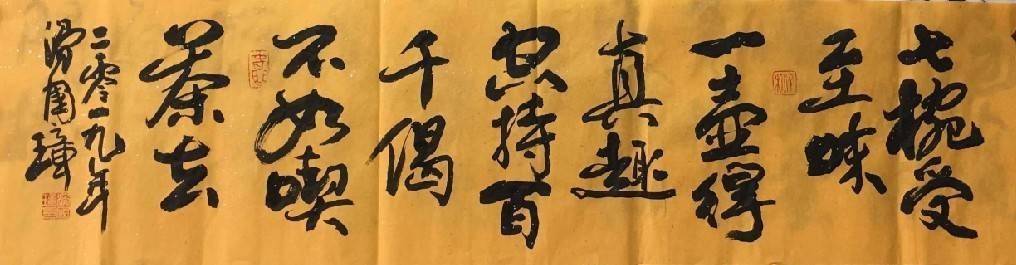 七椀受
至味
一壺得
真趣
空持百
千偈
不如喫
茶去
二零一九年
滑國璋